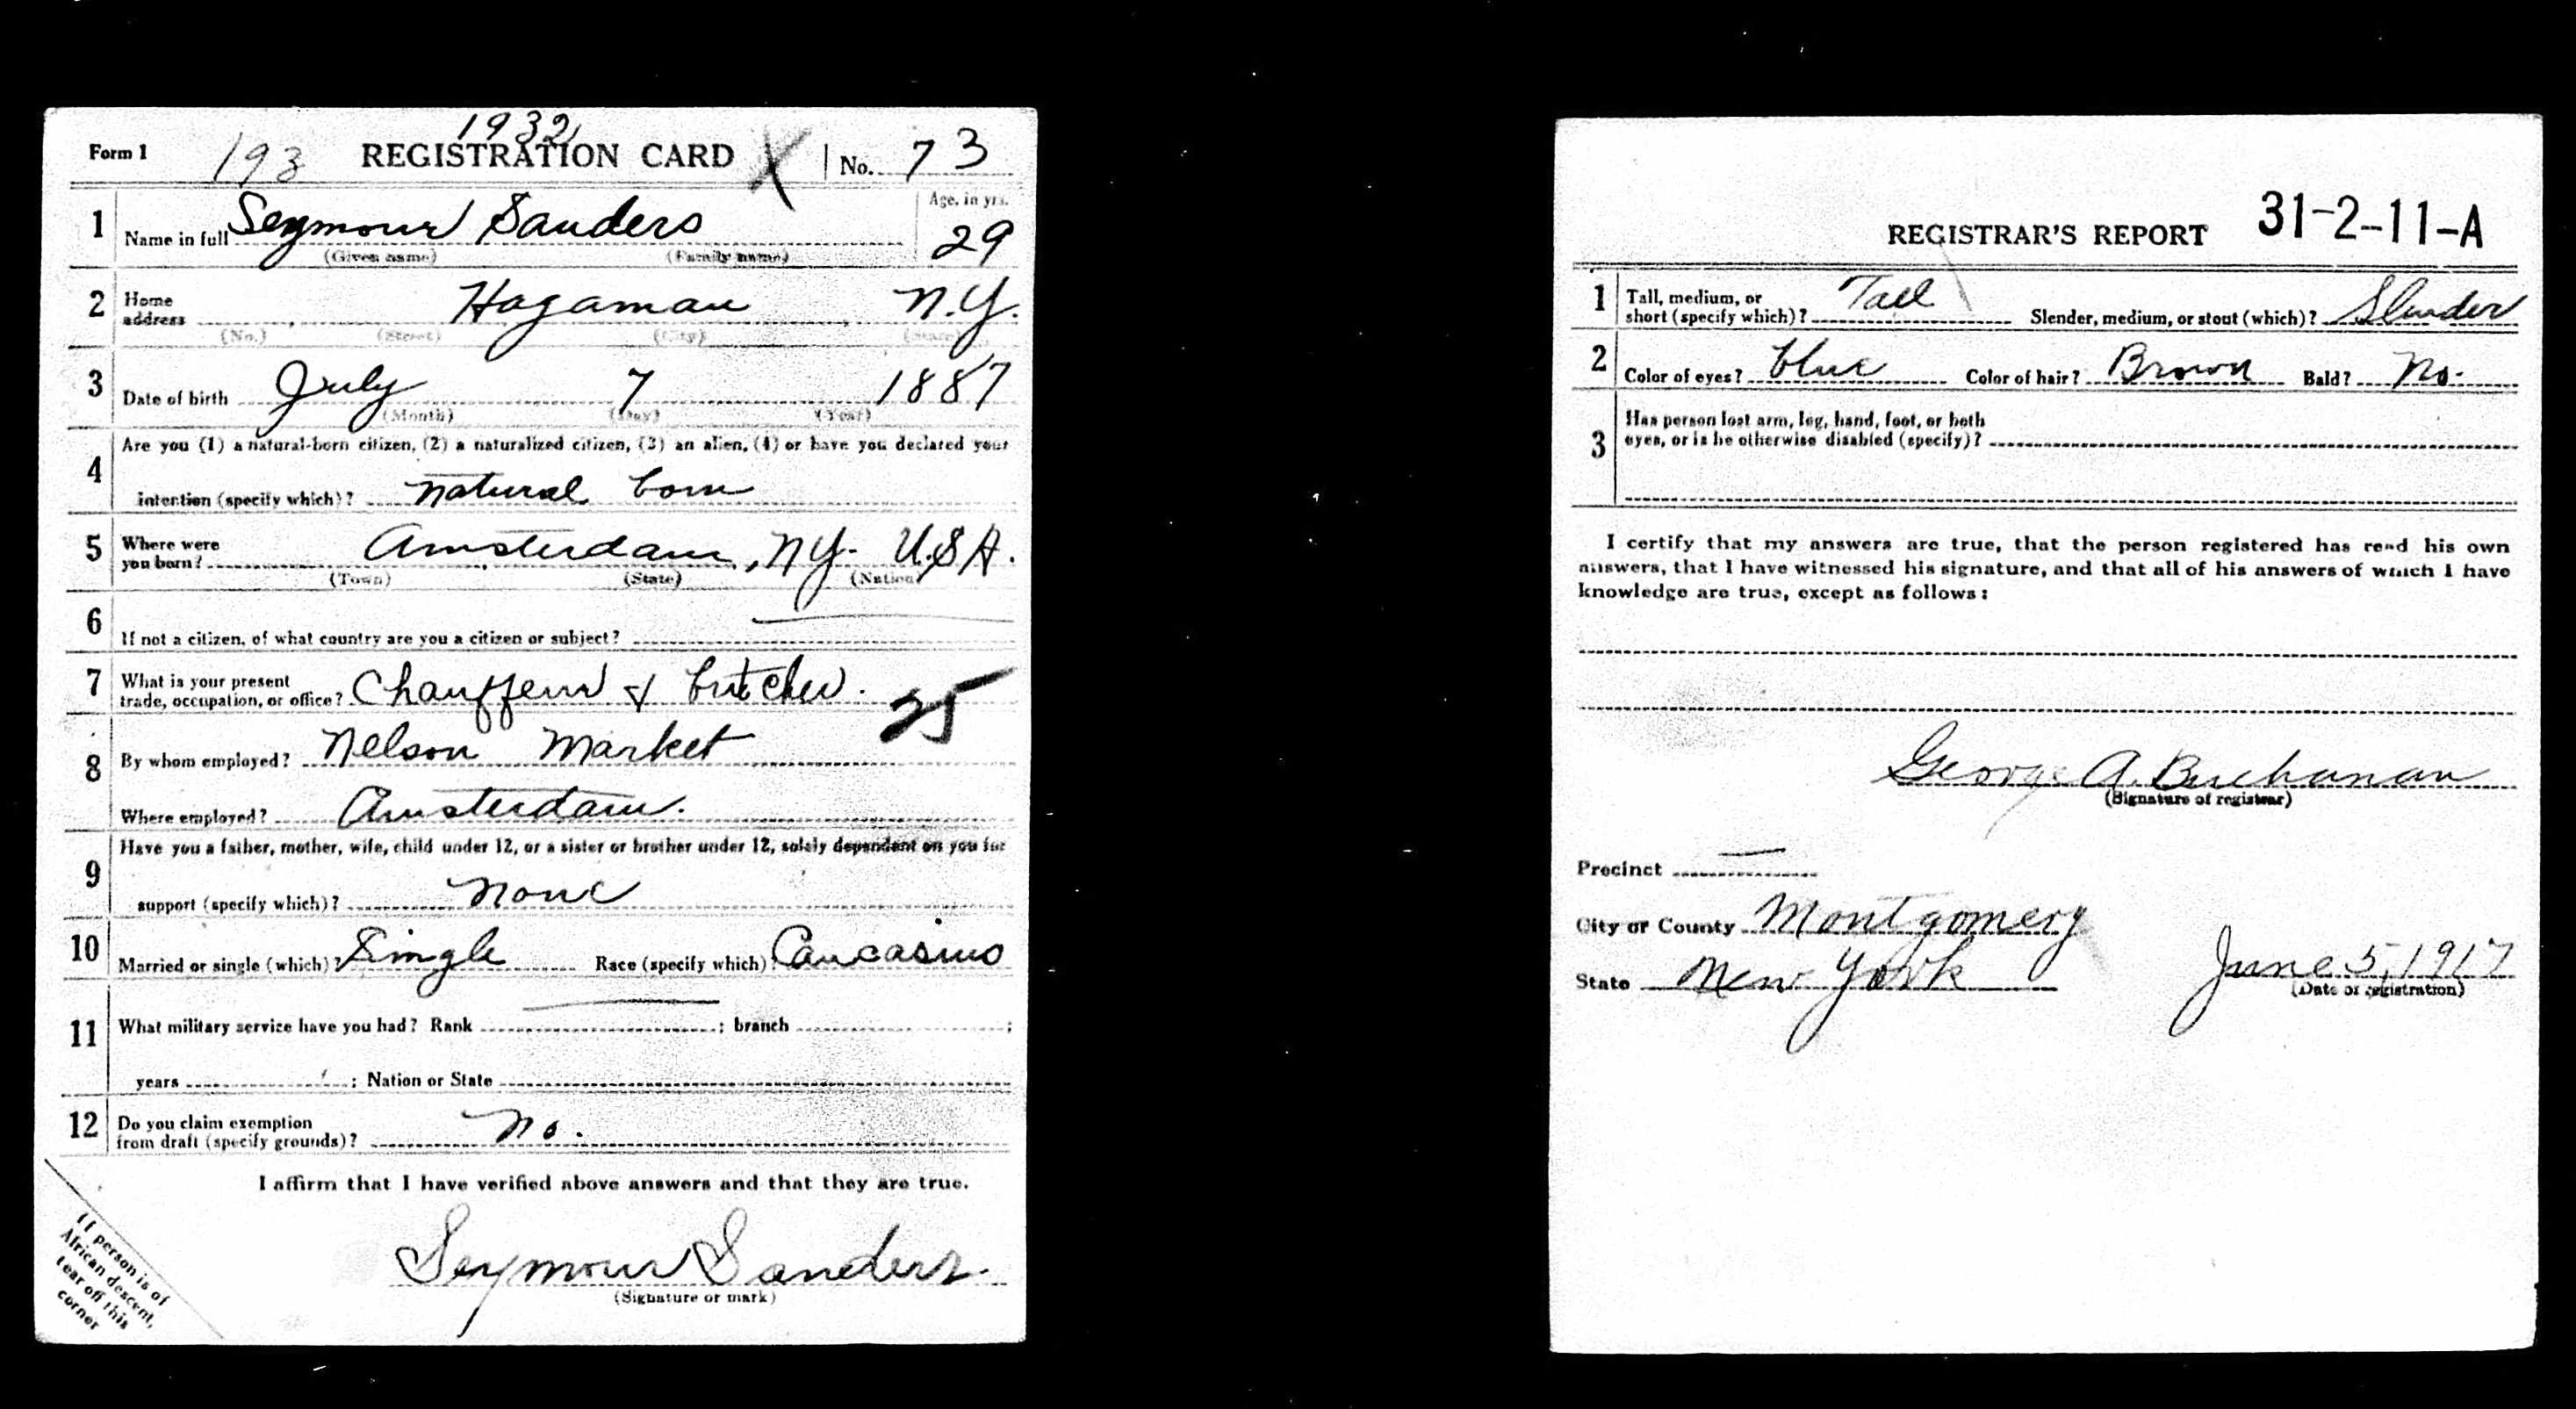 1932
Form 1 193 REGISTRATION CARD X No. 73
1 Name in full Seymour Sanders Age, in yrs. 29
(Given name) (Family name)
2 Home address Hagaman N.Y.
(No.) (Street) (City) (State)
3 Date of birth July 7 1887
(Month) (Day) (Year)
4 Are you (1) a natural-born citizen, (2) a naturalized citizen, (3) an alien, (4) or have you declared your
intention (specify which)? natural born
5 Where were you born? Amsterdam, N.Y. U.S.A.
(Town) (State) (Nation)
6 If not a citizen, of what country are you a citizen or subject?
7 What is your present trade, occupation, or office? Chauffeur & butcher. 25
8 By whom employed? Nelson Market
Where employed? Amsterdam.
9 Have you a father, mother, wife, child under 12, or a sister or brother under 12, solely dependent on you for
support (specify which)? None
10 Married or single (which)? Single Race (specify which)? Caucasian
11 What military service have you had? Rank ; branch ;
years ; Nation or State
12 Do you claim exemption from draft (specify grounds)? No.
I affirm that I have verified above answers and that they are true.
Seymour Sanders.
(Signature or mark)
If person is of
African descent,
tear off this
corner
REGISTRAR'S REPORT 31-2-11-A
1 Tall, medium, or short (specify which)? Tall Slender, medium, or stout (which)? Slender
2 Color of eyes? blue Color of hair? Brown Bald? No.
3 Has person lost arm, leg, hand, foot, or both
eyes, or is he otherwise disabled (specify)?
I certify that my answers are true, that the person registered has read his own
answers, that I have witnessed his signature, and that all of his answers of which I have
knowledge are true, except as follows:
George A. Buchanan
(Signature of registrar)
Precinct
City or County Montgomery
State New York June 5, 1917
(Date of registration)